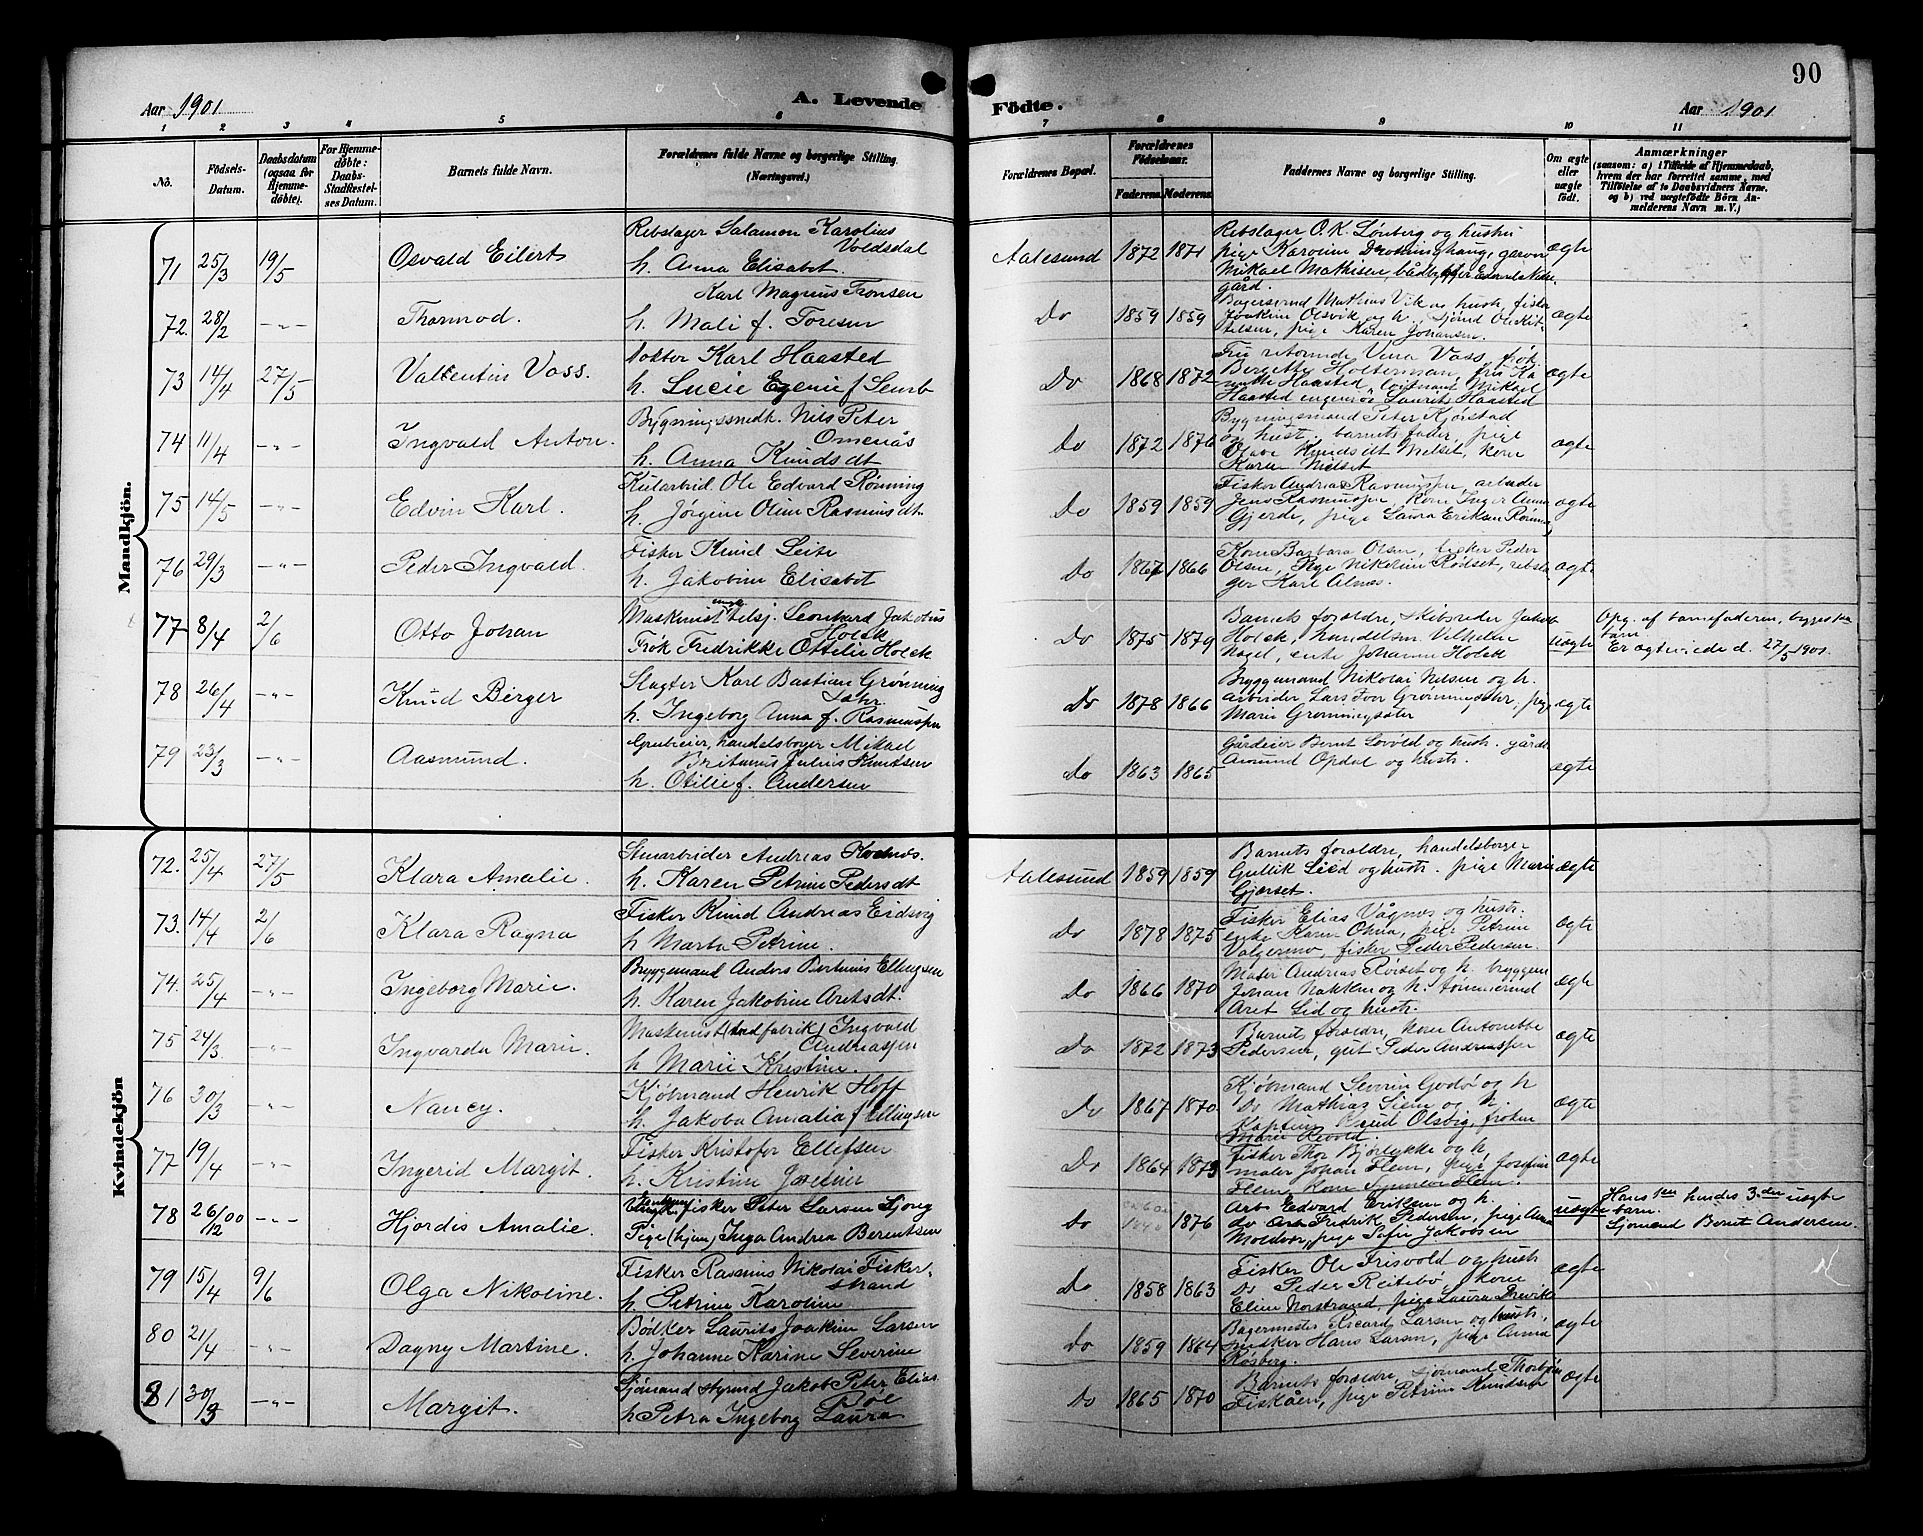 90
Aar 1901
A. Levende Födte.
Aar 1901
1 2 3 4 5 6 7 8 9 10 11
No.
Födsels-Datum.
Daabsdatum (ogsaa for Hjemmedöbte).
For Hjemmedöbte: Daabs-Stadfæstelses Datum.
Barnets fulde Navn.
Forældrenes fulde Navne og borgerlige Stilling. (Næringsvei.)
Forældrenes Bopæl.
Forældrenes Födselsaar.
Faderens. Moderens.
Faddernes Navne og borgerlige Stilling.
Om ægte eller uægte født.
Anmærkninger
(saasom: a) i Tilfælde af Hjemmedaab, hvem der har forrettet samme, med Tilföielse af to Daabsvidners Navne, og b) ved uægtefödte Börn Anmelderens Navn m. V.)
Mandkjön.
71 25/3 19/5 Osvald Eilert
Rebslager Salamon Karolius Voldsdal
h. Anna Elisabet.
Aalesund 1872 1871
Rebslager O.K. Lönberg og hustru
pige Karoline Dronninghaug, garver
Mikael Mathisen, bådbygger
gård.
ægte
72. 28/2 -"- Thormod.
Karl Magnus Tronsen
h. Mali f. Toresen
Do 1859 1859
Mathias Vik og hust, fisker
Joakim Olsvik og h.,
pige Karen Johansen.
ægte
73 14/4 27/5 Valentin Voss.
Doktor Karl Haasted
h. Lucie Egenie f
Do 1868 1872
Fru Vena Voss, frök.
Bergette Holterman, fru
Haasted, Mikael
Haasted Laurits Haasted
ægte
74. 11/4 -"- Ingvald Anton.
Bygningssnedk. Nils Peter Omenås
h. Anna Knudsdt
Do 1872 1876
Bygningsmand Peter Kjørstad
og hust, barnets fader, pige
Olave Knudsdt Melset, kone
Karen Melset
ægte
75 14/5 -"- Edvin Karl.
Kularbeid. Ole Edvard Rønning
h. Jørgine Olin Rasmusdt.
Do 1859 1859
Fisker Andreas Rasmussen, arbeider
Jens Rasmussen, kone Inger Anna
Gjerde, pige Laura Eriksen
ægte
76 29/3 -"- Peder Ingvald.
Fisker Knud Leite
h. Jakobine Elisabet
Do 1867 1866
Kone Barbara Olsen, fisker Peder
Olsen, Pige Nikoline Rødset, rebsla
ger Karl Alnæs.
ægte
77 8/4 2/6 Otto Johan
Maskinist Leonhard Jakobus Holsk
Frøk Fredrikke Ottelie Holck
Do 1875 1879
Barnets forældre, skibsreder Jakob
Holck, Vilhelm
Nagel, enke Johanne Holck
uægte
Opg. af barnefaderen, begges 1ste barn.
Er ægteviede d. 27/5 1901.
78 26/4 -"- Knud Birger
Slagter Karl Bastian Grønning
h. Ingeborg Anna f. Rasmussen
Do 1878 1866
Bryggemand Nikolai Nilsen og h.
arbeider Lars Iver Grønningsæter, pige
Marie Grønningsæter
ægte
79 23/3 -"- Aasmund.
handelsborger Mikael
Julius Knutsen
h. Otilie f. Andersen
do 1863 1865
Gårdeier Bernt Løvold og hust. gårdb.
Amund Opdal og hust.
ægte
Kvindekjön
72. 25/4 27/5 Klara Amalie.
Stenarbeider Andreas
h. Karen Petrine Pedersdt
Aalesund 1859 1859
Barnets forældre, handelsborger
Gullik Lied og hust. pige Marie
Gjærset.
ægte
73. 14/4 2/6 Klara Ragna
Fisker Knud Andreas Eidsvig
h Marta Petrine.
Do 1878 1875
Fisker Elias Vågnæs og hust.
pige Petrine
Valgermo, fisker Peder Pedersen.
ægte
74. 25/4 -"- Ingeborg Marie.
Bryggemand Anders Bertinus Ellingsen
h. Karen Jakobine Aretsdt.
Do 1866 1870
Maler Andreas Røiset og h. bryggem
Johan Nakken og h. tømmermd
Aret Lid og hust.
ægte
75 24/3 -"- Ingvarda Marie.
Maskinist Ingvald Andreassen
h Marie Kristine.
Do 1872 1873
Barnets forældre, kone Antonette
Pedersen, gut Peder Andreassen
ægte
76 30/3 -"- Nancy.
Kjøbmand Henrik Hoff
h. Jakoba Amalia f Ellingsen
Do 1867 1870
Kjøbmand Severin Godø og h
Do Mathias Siem og h.
Kaptein Knud Olsvig, frøken
Marie Revold.
ægte
77 19/4 -"- Ingerid Margit.
Fisker Kristofer Ellefsen
h. Kristine
Do 1864 1873
Fisker Thor Bjørlykke og h,
maler Johan Flem, pige Josefine
Flem, kone Flem.
ægte
78 26/12 00 -"- Hjørdis Amalie.
Ungk. fisker Peter Larsen
Pige (hjem) Inga Andrea Berentsen
Do 1876
Arb Edvard Eriksen og h.
do Fredrik Pedersen, pige Anna
pige Sofie Jakobsen
uægte
Hans 1ste hendes 3die uægte barn.
Sjømand Bernt Andersen.
79 15/4 9/6 Olga Nikoline.
Fisker Rasmus Nikolai Fiskerstrand
h. Petrine Karoline
Do 1858 1863
Fisker Ole Frisvold og hust
Do Peder Reitebø, kone
Eline Norstrand, pige Laura
ægte
80 21/4 -"- Dagny Martine.
Bødker Laurits Joakim Larsen
h. Johanne Karine Severine
Do 1859 1864
Bagermester Ricard Larsen og hust.
Hans Larsen, pige Anna
Røsberg.
ægte
81 30/3 -"- Margit.
Sjømand Jakob Peter Elias
h Petra Ingeborg Laura
Do 1865 1870
Barnets forældre, sjømand
Fiskåen, pige Petrine Knudsen
ægte